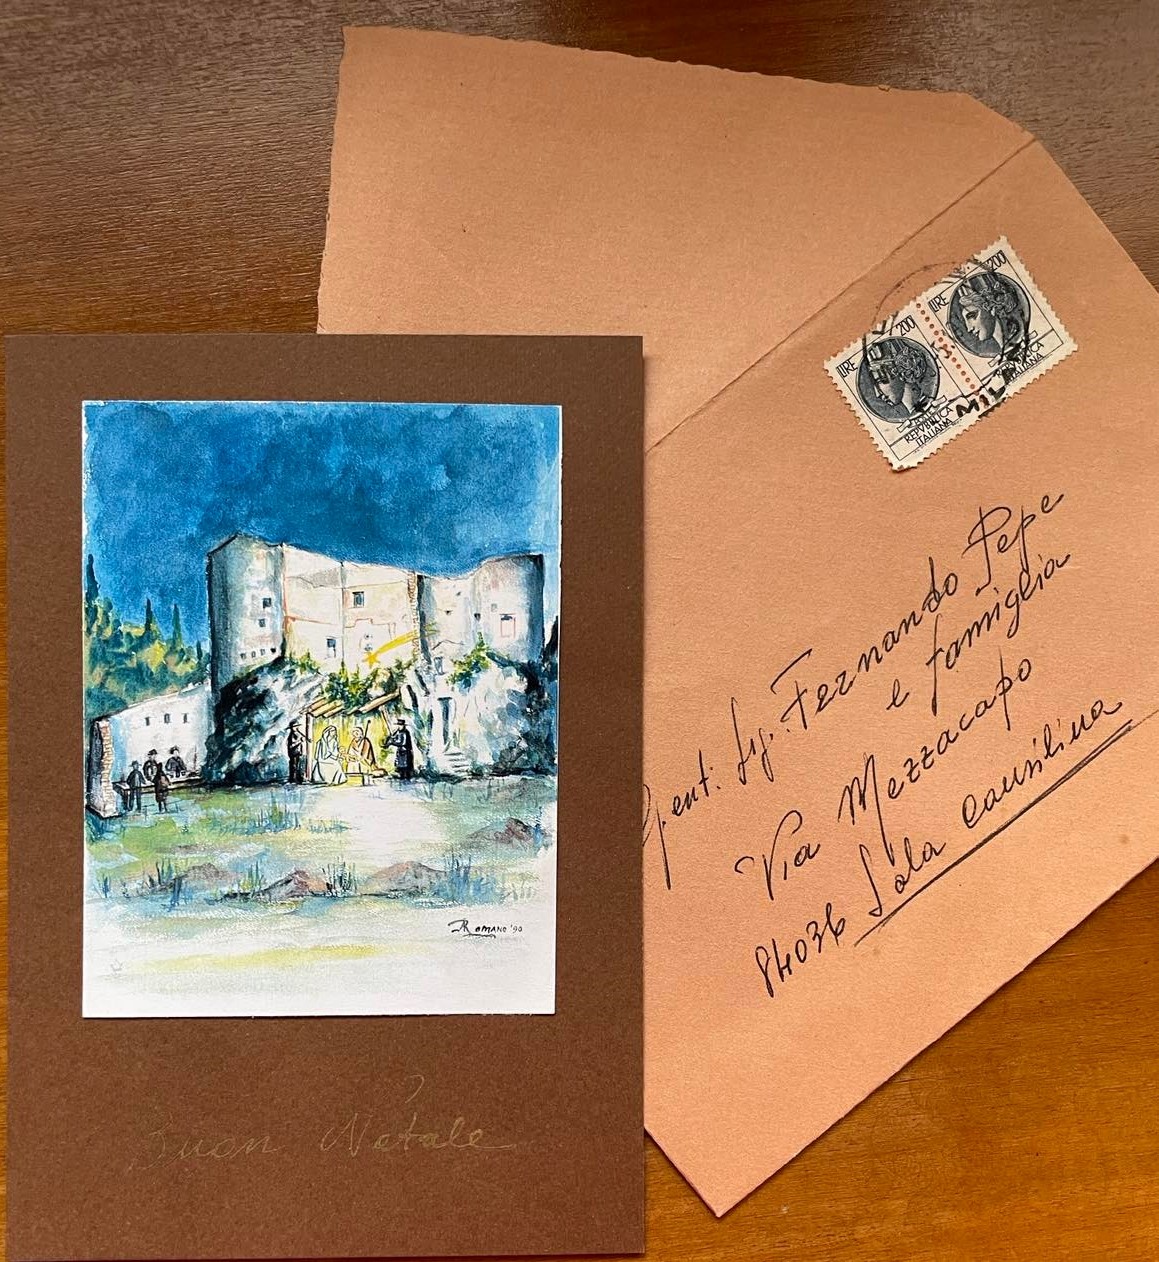 LIRE 200
REPVBBLICA
ITALIANA
LIRE 200
REPVBBLICA
ITALIANA
MIL
Gent. Sig. Fernando Pepe
e famiglia
Via Mezzacapo
84036 Sala Consilina
ROMANO '90
Buon Natale